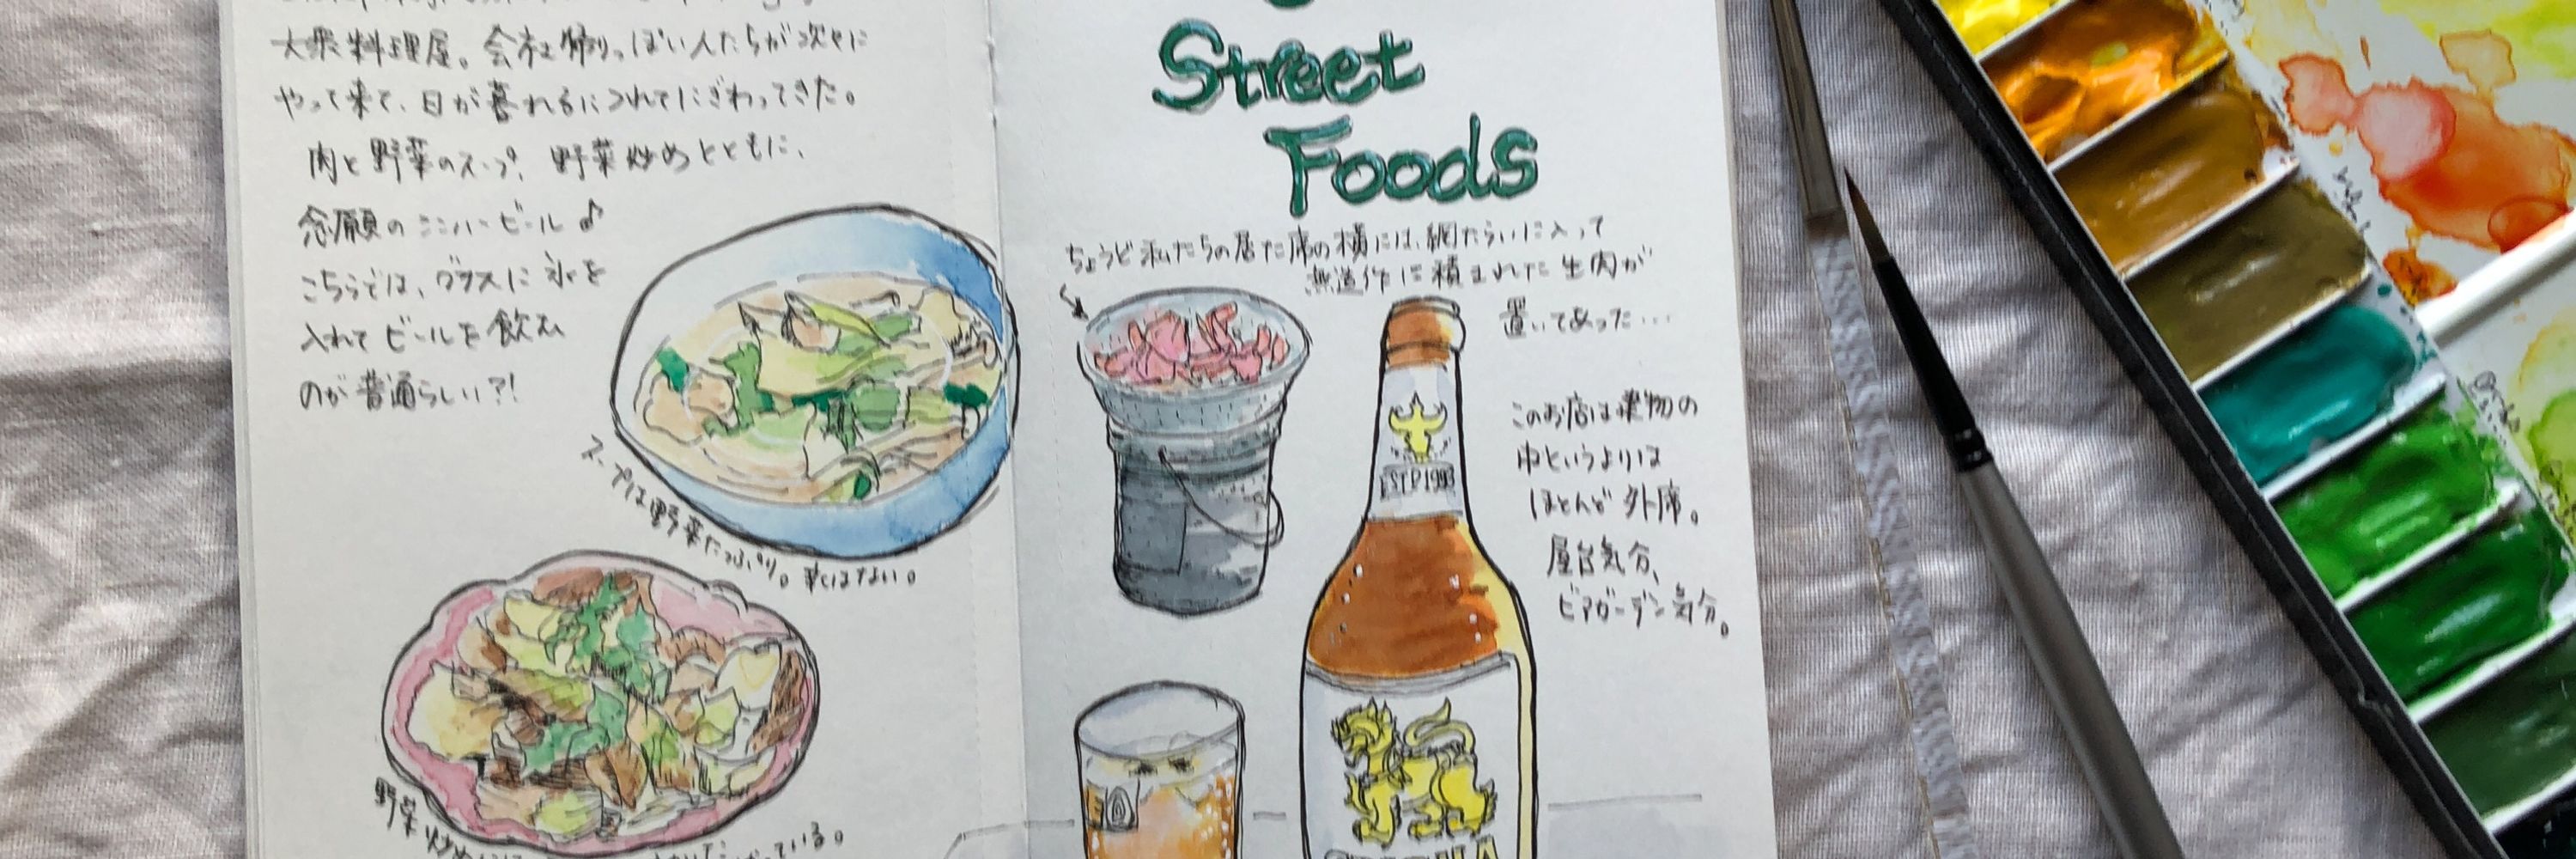 大衆料理屋。会社帰りっぽい人たちが次々に
やって来て、日が暮れるにつれてにぎわってきた。
肉と野菜のスープ、野菜炒めとともに、
念願のシンハービール♪
こちらでは、グラスに氷を
入れてビールを飲む
のが普通らしい?!
スープは野菜たっぷり。辛くはない。
野菜炒め
ている。
Street
Foods
ちょうど私たちの居た席の横には、網たらいに入って
無造作に積まれた生肉が
置いてあった…
ESTD 1933
このお店は建物の
中というよりは
ほとんど外席。
屋台気分、
ビアガーデン気分。